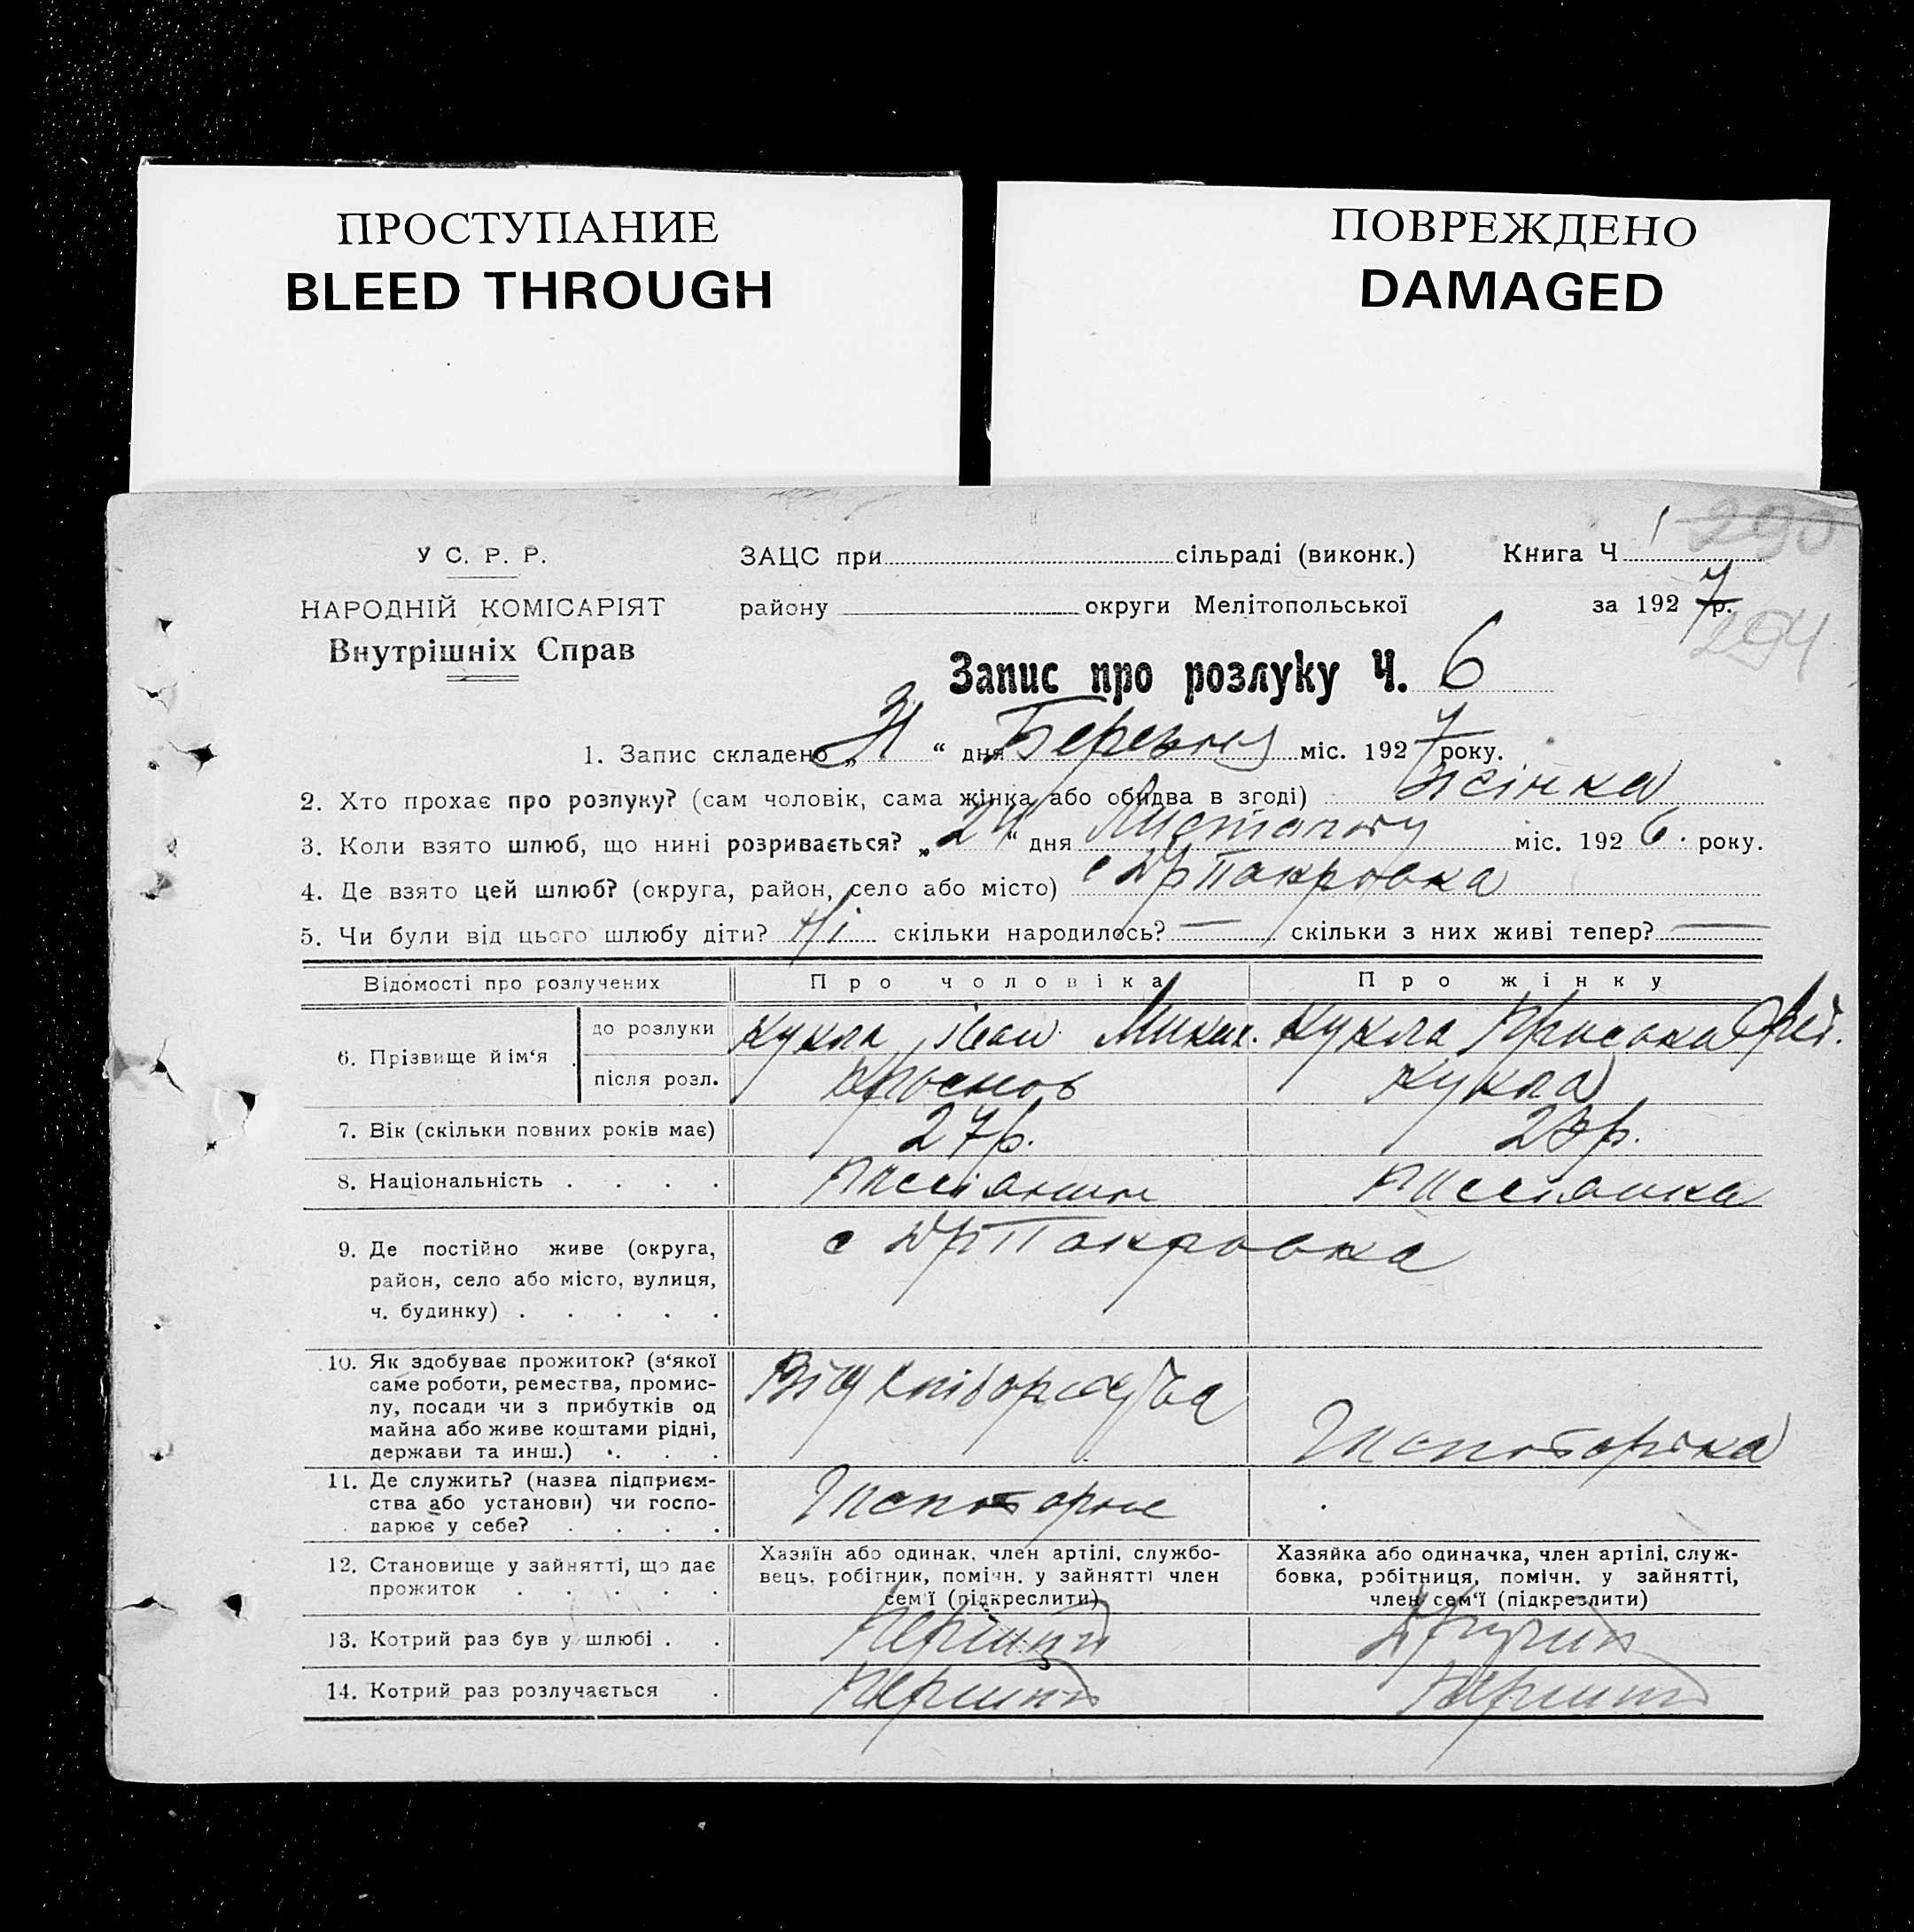 ПРОСТУПАНИЕ
BLEED THROUGH
ПОВРЕЖДЕНО
DAMAGED
У С. Р. Р.
НАРОДНІЙ КОМІСАРІЯТ
Внутрішніх Справ
ЗАЦС при сільраді (виконк.)
Книга Ч 1 290
району округи Мелітопольської
за 1927 р.
294
Запис про розлуку Ч. 6
1. Запис складено „ “ дня Березня міс. 1927 року.
2. Хто прохає про розлуку? (сам чоловік, сама жінка або обидва в згоді) Жінка
3. Коли взято шлюб, що нині розривається? „24“ дня Листопаду міс. 1926. року.
4. Де взято цей шлюб? (округа, район, село або місто) с Покровка
5. Чи були від цього шлюбу діти? Ні скільки народилось? — скільки з них живі тепер? —
Відомості про розлучених
Про чоловіка
Про жінку
6. Прізвище й ім‘я
до розлуки
Кукла Іван Микит.
Кукла Приська
після розл.
Кукла
7. Вік (скільки повних років має)
27р.
8. Національність . . . .
9. Де постійно живе (округа,
район, село або місто, вулиця,
ч. будинку) . . . . .
с Покровка
10. Як здобуває прожиток? (з‘якої
саме роботи, ремества, промис-
лу, посади чи з прибутків од
майна або живе коштами рідні,
держави та инш.) . . .
11. Де служить? (назва підприєм-
ства або установи) чи госпо-
дарює у себе? . . . .
12. Становище у зайнятті, що дає
прожиток . . . . .
Хазяїн або одинак, член артілі, службо-
вець, робітник, помічн. у зайнятті член
сем‘ї (підкреслити)
Хазяйка або одиначка, член артілі, служ-
бовка, робітниця, помічн. у зайнятті,
член сем‘ї (підкреслити)
13. Котрий раз був у шлюбі . .
Перший
Другий
14. Котрий раз розлучається .
Перший
Перший